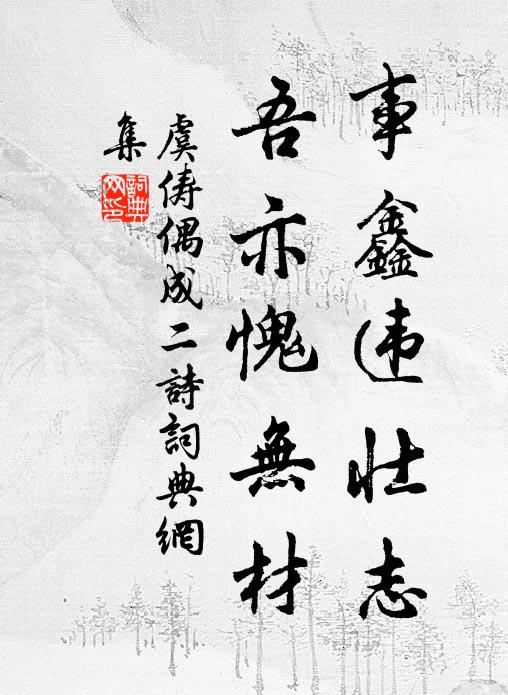 事鑫违壮志
吾亦愧無材
虞俦偶成二詩詞典網
集
詞典网印